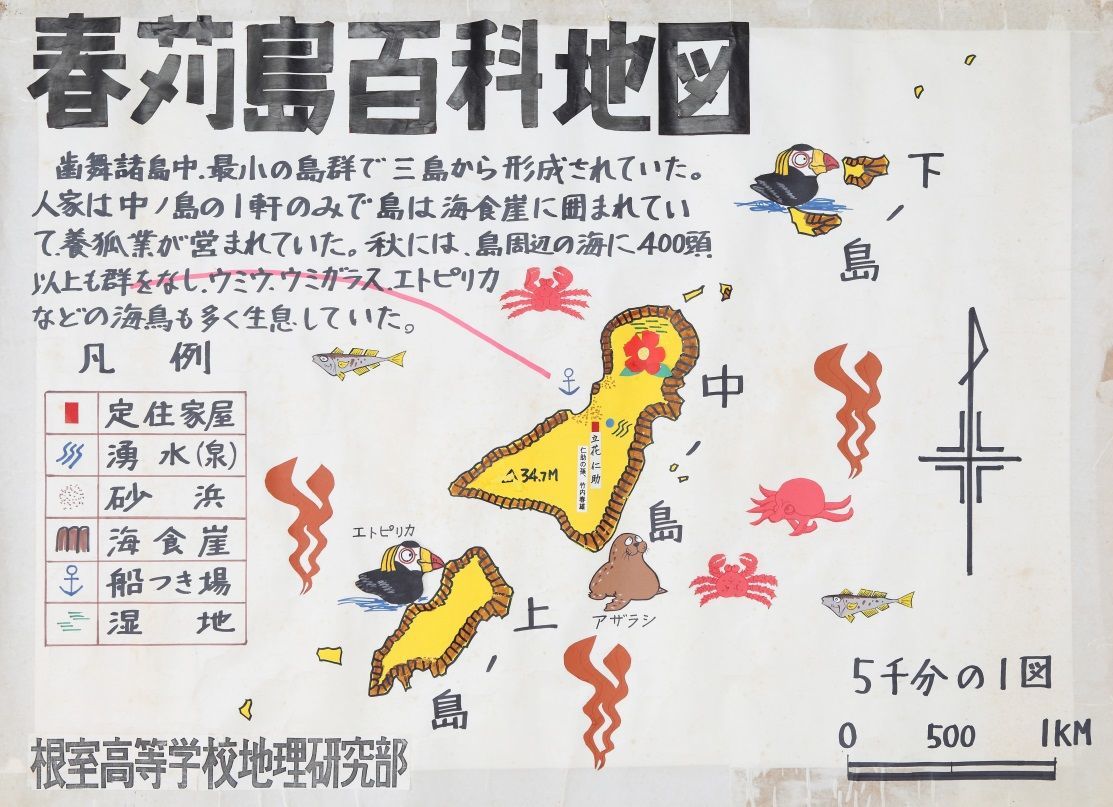 春苅島百科地図
歯舞諸島中.最小の島群で三島から形成されていた。
人家は中ノ島の1軒のみで島は海食崖に囲まれてい
て.養狐業が営まれていた。秋には、島周辺の海に400頭
以上も群をなし.ウミウ.ウミガラス.エトピリカ
などの海鳥も多く生息していた。
凡例
定住家屋
湧水(泉)
砂浜
海食崖
船つき場
湿地
下ノ島
中ノ島
立花仁助
仁助の孫、竹内春雄
34.7M
エトピリカ
アザラシ
上ノ島
5千分の1図
0 500 1KM
根室高等学校地理研究部